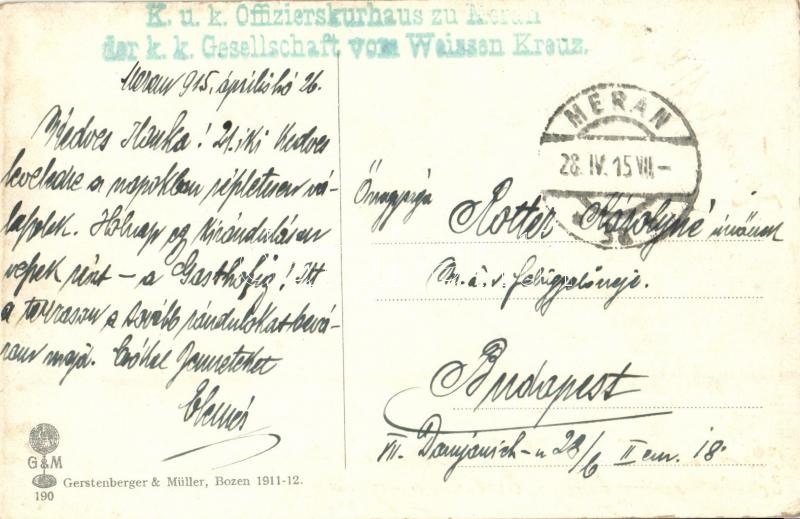 K. u. k. Offizierskurhaus zu Meran
der k. k. Gesellschaft vom Weissen Kreuz.
Meran 915, áprilishó 26.
Kedves Ilonka! 21.iki kedves
leveledre a napokban részletesen vá-
laszolok. Holnap egy kiránduláson
veszek részt – a Gasthofig! Itt
a terrasson a tovább rándulókat bevá-
rom majd. Csókol Benneteket
Elemér
MERAN
28. IV. 15 VII –
Őnagysága
Rotter Károlyné úrnőnek
m. á. v. főfelügyelő neje.
Budapest
VII. Damjanich-u 28/b II em. 18.
G & M
190
Gerstenberger & Müller, Bozen 1911-12.